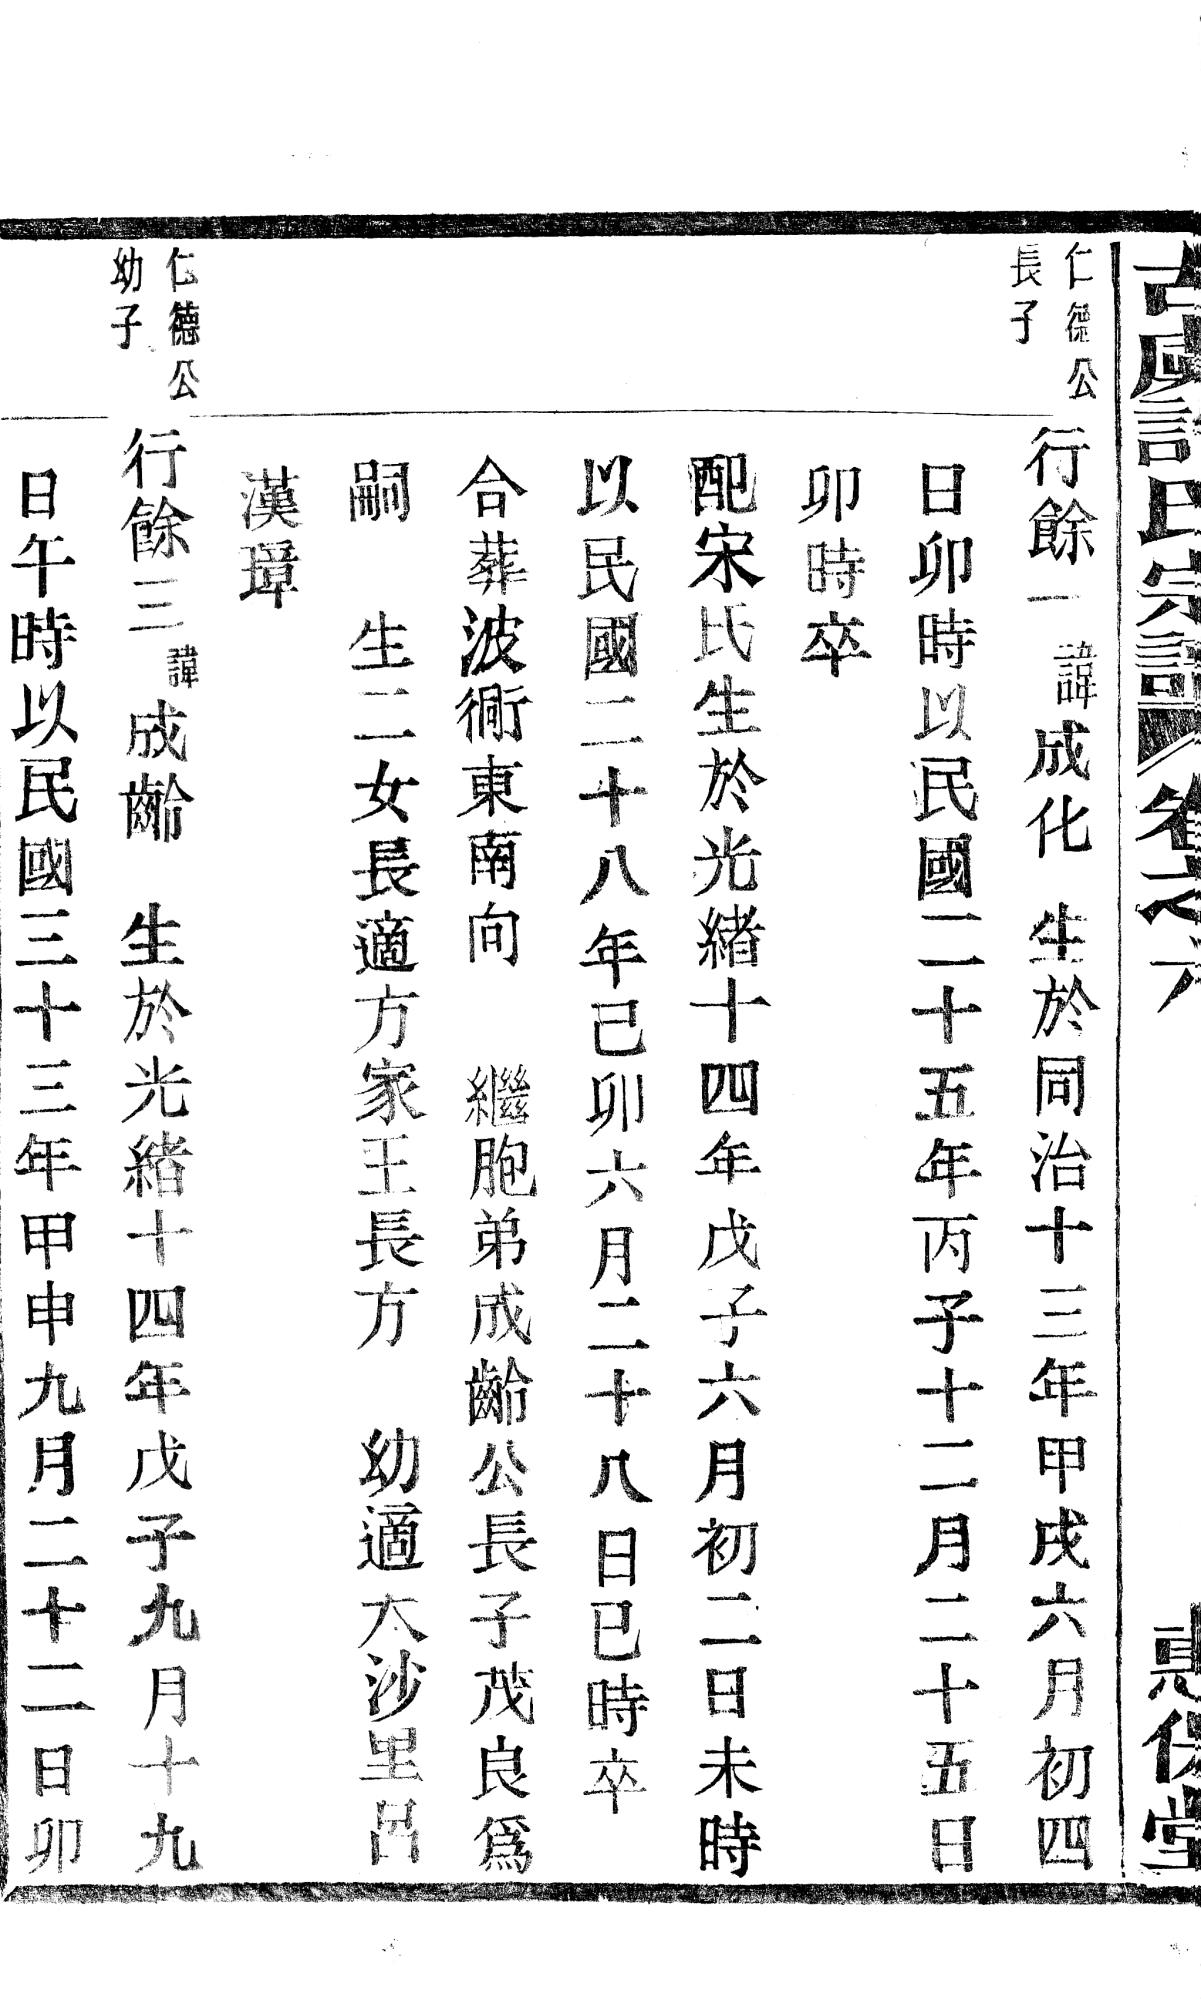 古虞許氏宗譜 卷之六 惠保堂
仁德公
長子
行餘一 諱成化 生於同治十三年甲戌六月初四
日卯時以民國二十五年丙子十二月二十五日
卯時卒
配宋氏生於光緒十四年戊子六月初二日未時
以民國二十八年己卯六月二十八日巳時卒
合葬波衕東南向 繼胞弟成齡公長子茂良爲
嗣 生二女長適方家王長方 幼適大沙里呂
漢璋
仁德公
幼子
行餘三 諱成齡 生於光緒十四年戊子九月十九
日午時以民國三十三年甲申九月二十二日卯